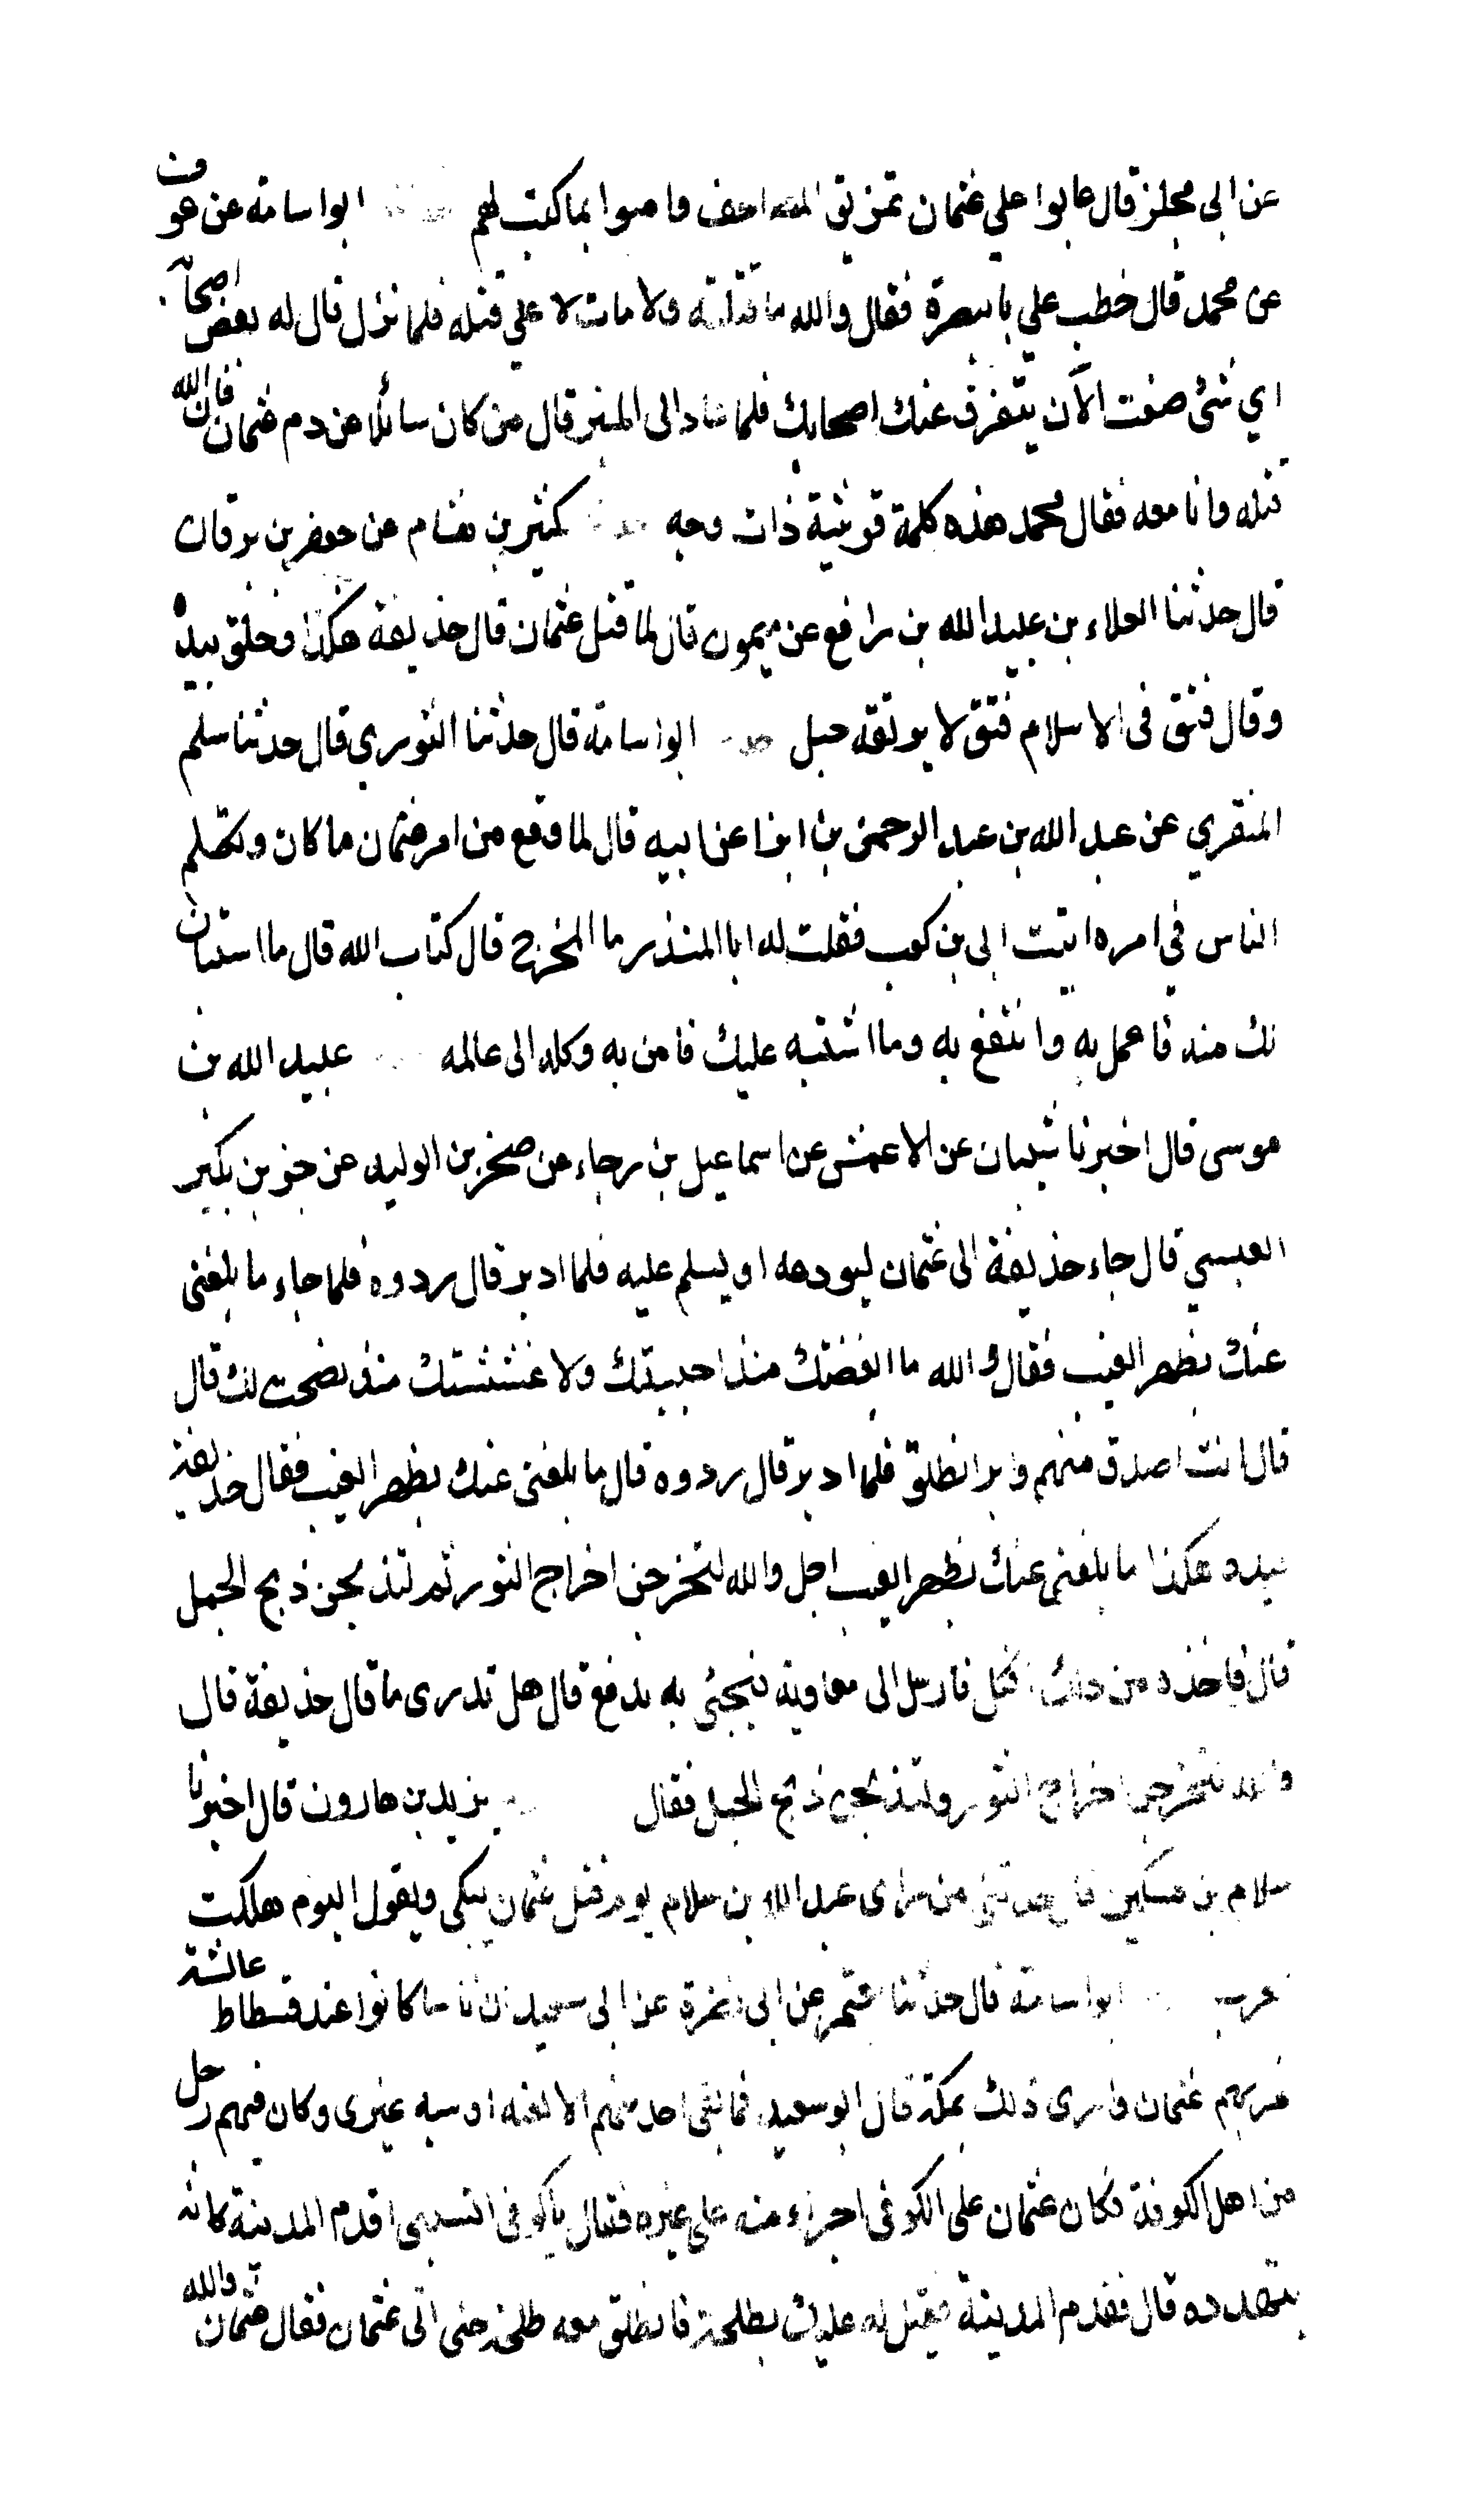 عن ابى مجلز قال عابوا على عثمان تمزيق المصاحف وامنوا بما كتب لهم ابو اسامة عن عوف
عن محمد قال خطب علي بالبصرة فقال والله ما قتلته ولا مالات على قتله فلما نزل قال له بعض اصحابه
اي شئ صنعت الآن يتفرق عنك اصحابك فلما عاد الى المنبر قال من كان سائلا عن دم عثمان فان الله
قتله وانا معه فقال محمد هذه كلمة قرشية ذات وجه كثير بن هشام عن جعفر بن برقان
قال حدثنا العلاء بن عبيد الله بن رافع عن ميمون قال لما قتل عثمان قال حذيفة هكذا وحلق بيده
وقال فتق فى الاسلام فتق لا يرتقه جبل ابو اسامة قال حدثنا الثوري قال حدثنا سلم
المنقري عن عبد الله بن عبد الرحمن بن ابزا عن ابيه قال لما وقع من امر عثمان ما كان وتكلم
الناس في امره اتيت ابى بن كعب فقلت له ابا المنذر ما المخرج قال كتاب الله قال ما استبان
لك منه فاعمل به وانتفع به وما اشتبه عليك فامن به وكله الى عالمه عبيد الله بن
موسى قال اخبرنا شيبان عن الاعمش عن اسماعيل بن رجاء عن صخر بن الوليد عن جزو بن بكير
العبسي قال جاء حذيفة الى عثمان ليودعه او يسلم عليه فلما ادبر قال ردوه فلما جاء ما بلغنى
عنك بظهر الغيب فقال والله ما ابغضتك منذ احببتك ولا غششتك منذ نصحت لك قال
قال انت اصدق منهم وابر انطلق فلما ادبر قال ردوه قال ما بلغنى عنك بظهر الغيب فقال حذيفة
بيده هكذا ما بلغنى عنك بظهر الغيب اجل والله لتخرجن اخراج الثور ثم لتذبحن ذبح الجمل
قال فاخذه من ذلك فارسل الى معاوية فجئ به يدفع قال هل تدرى ما قال حذيفة قال
والله لتخرجن اخراج الثور ولتذبحن ذبح الجمل فقال يزيد بن هارون قال اخبرنا
سلام بن مسكين قال حدثني من راى عبد الله بن سلام يوم قتل عثمان يبكى ويقول اليوم هلكت
العرب ابو اسامة قال حدثنا معتمر عن ابى نضرة عن ابى سعيد ان ناسا كانوا عند فسطاط عائشة
فمر بهم عثمان وارى ذلك بمكة قال ابو سعيد فما بقى احد منهم الا لعنه او سبه غيرى وكان فيهم رجل
من اهل الكوفة فكان عثمان على الكوفى اجراء منه على غيره فقال يا كوفى اتسبنى اقدم المدينة كانه
يتهدده قال فقدم المدينة فقيل له عليك بطلحة فانطلق معه طلحة حتى اتى عثمان فقال عثمان والله